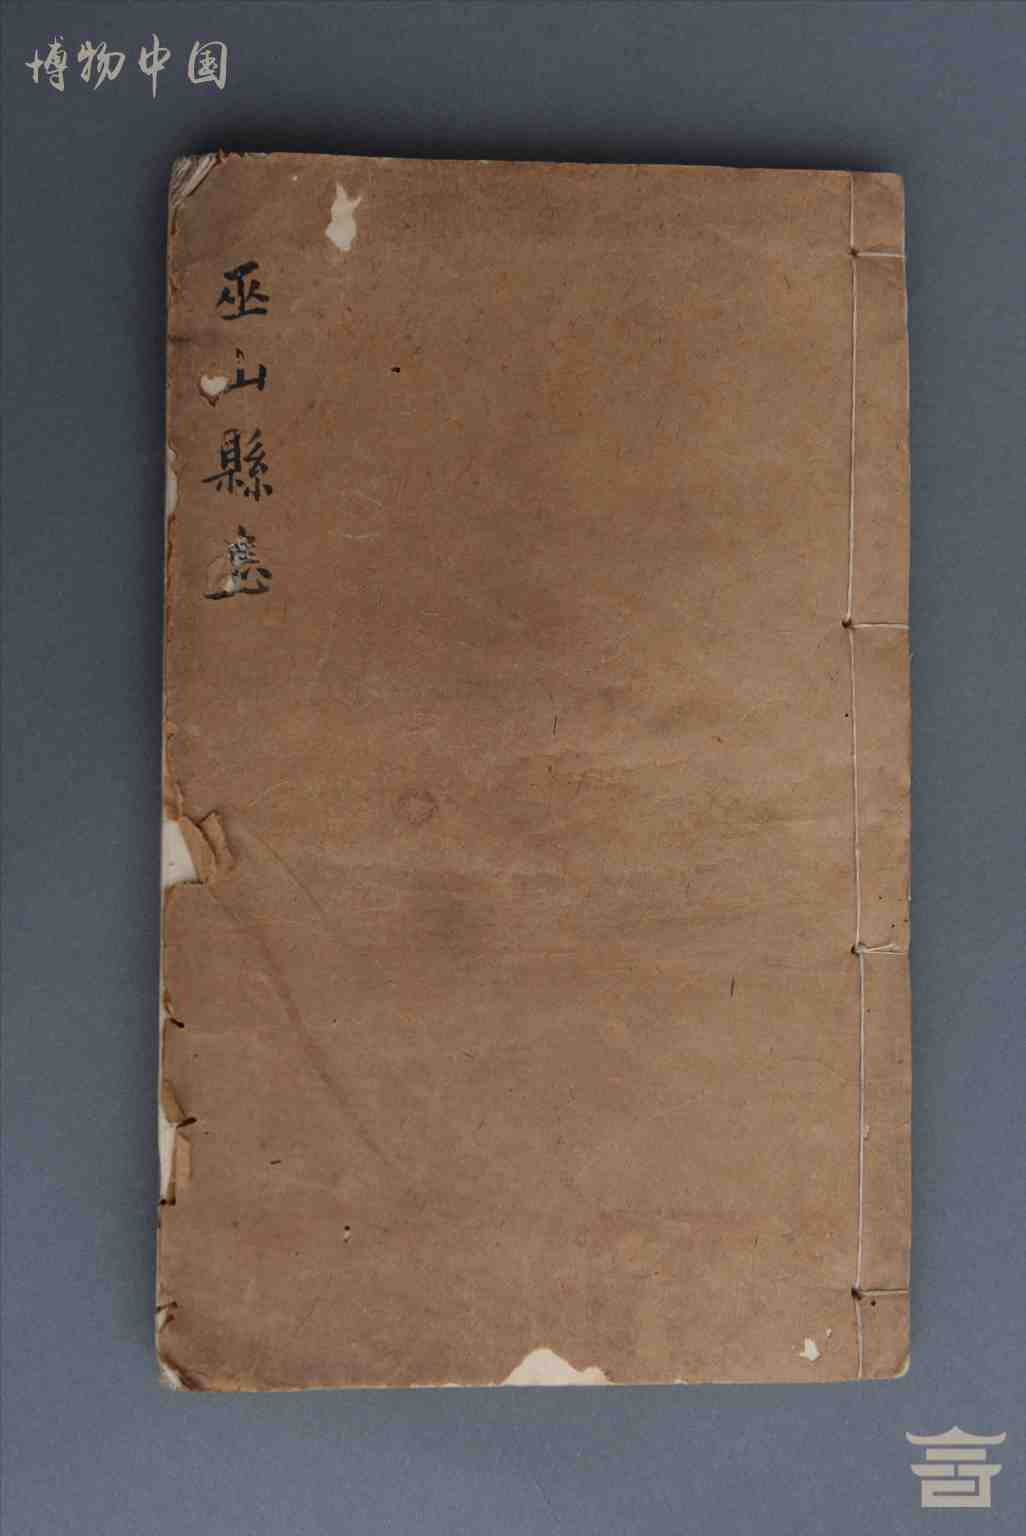 博物中国
巫山縣志